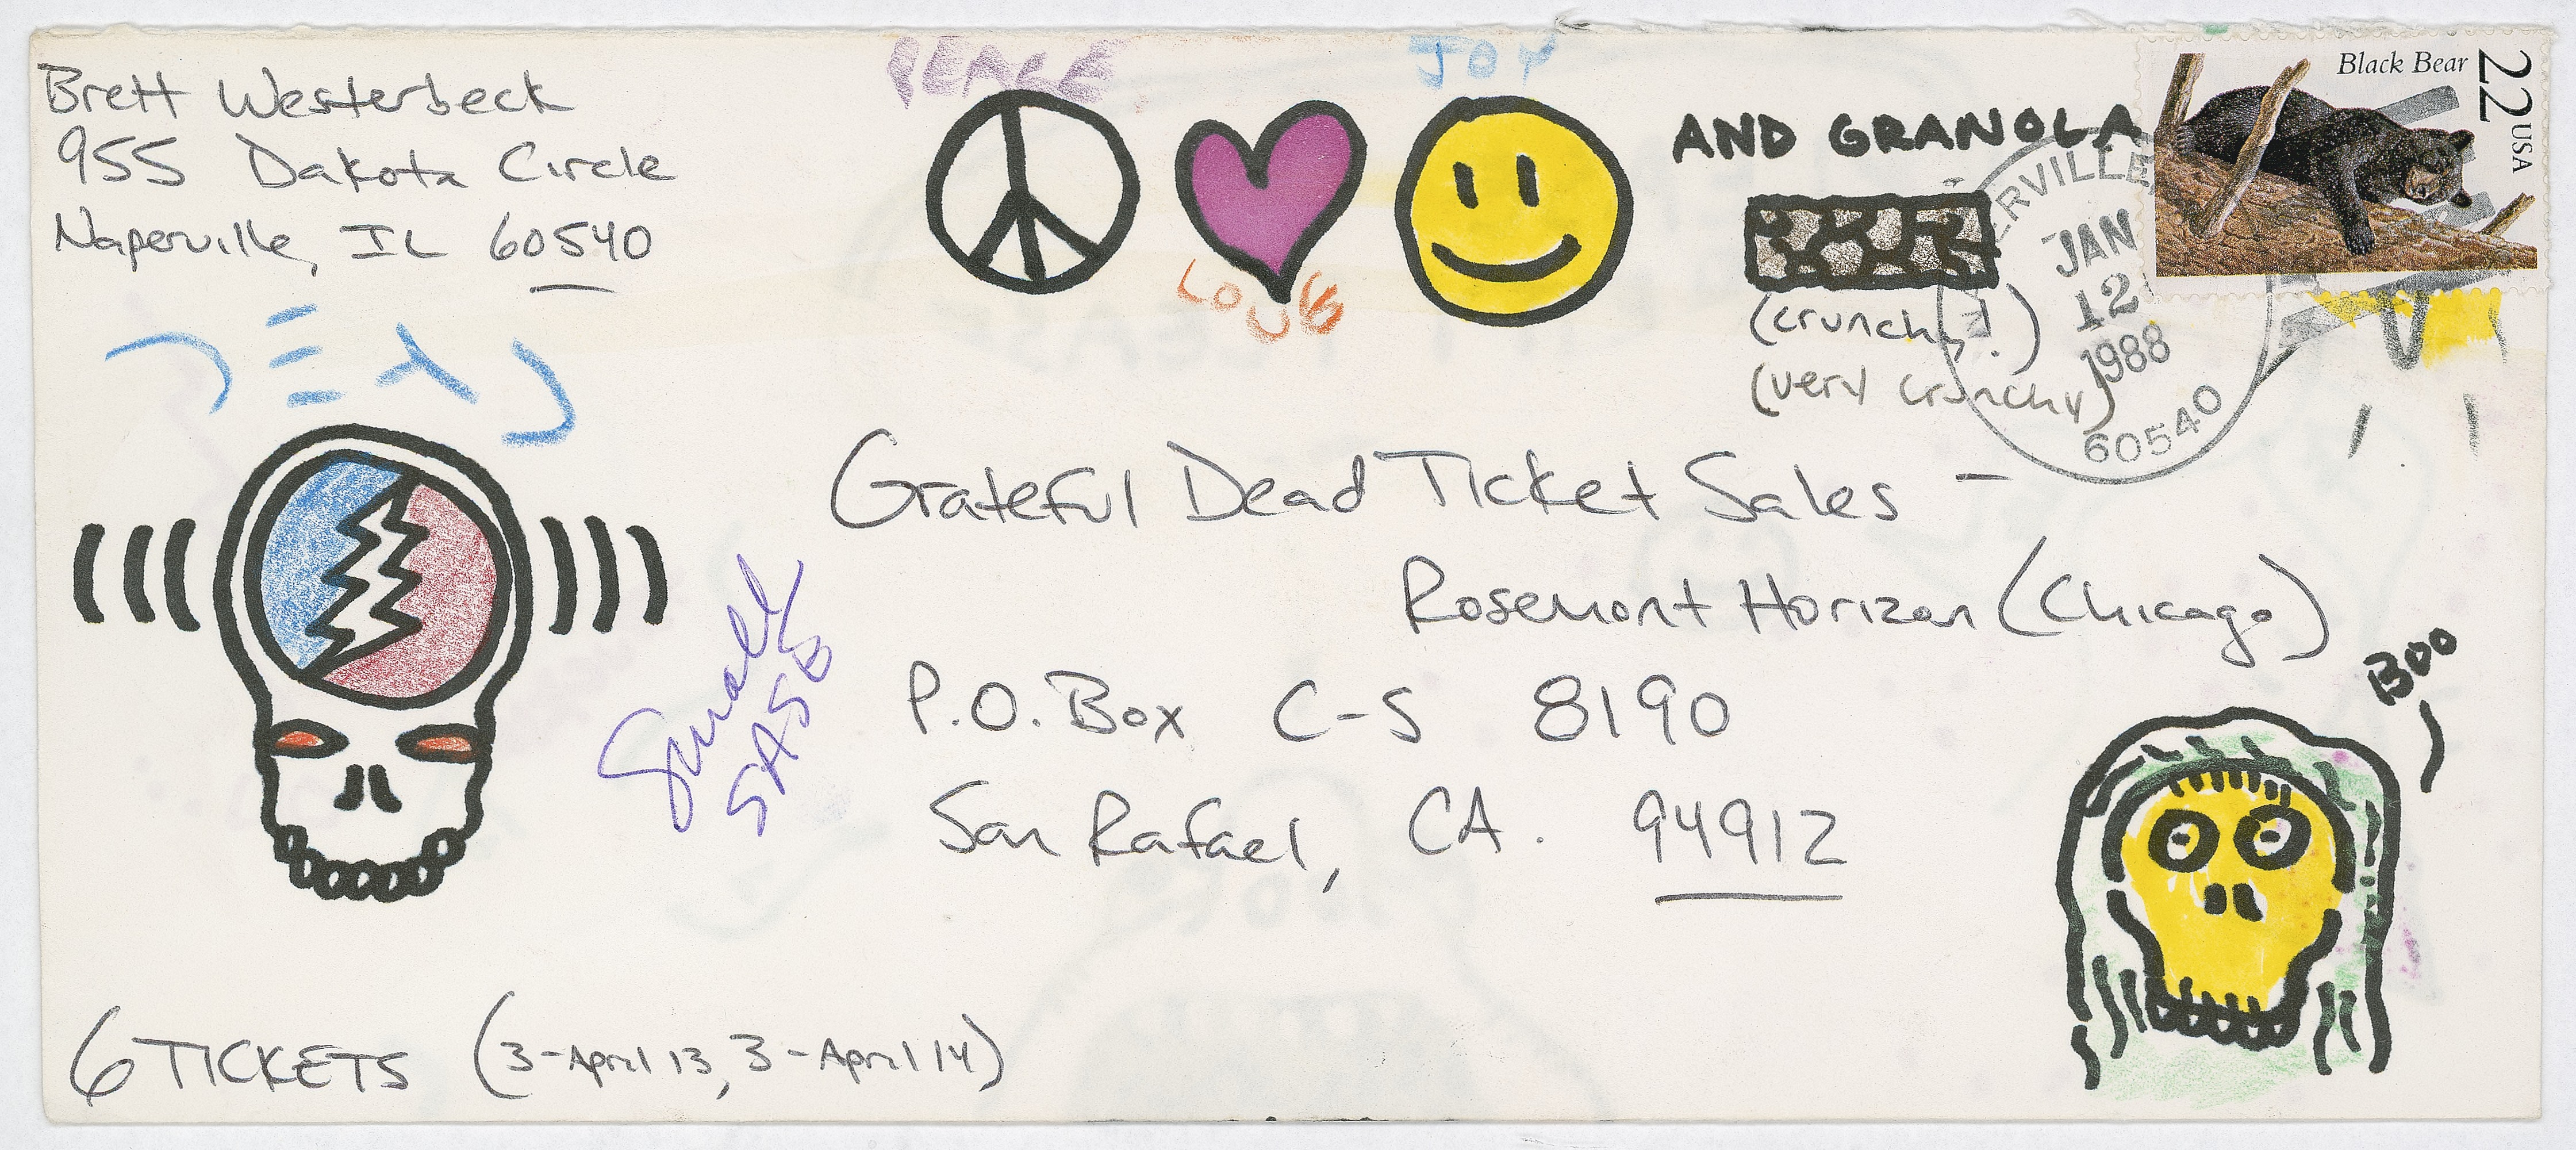 Brett Westerbeck
955 Dakota Circle
Naperville, IL 60540
PEACE
LOVE
JOY
AND GRANOLA
(crunchy!)
(very crunchy)
Black Bear
22 USA
ERVILLE
JAN
12
1988
60540
DEAD
Grateful Dead Ticket Sales –
Rosemont Horizon (Chicago)
P.O. Box C-S 8190
San Rafael, CA. 94912
Small
SASE
BOO
6 TICKETS (3-April 13, 3-April 14)